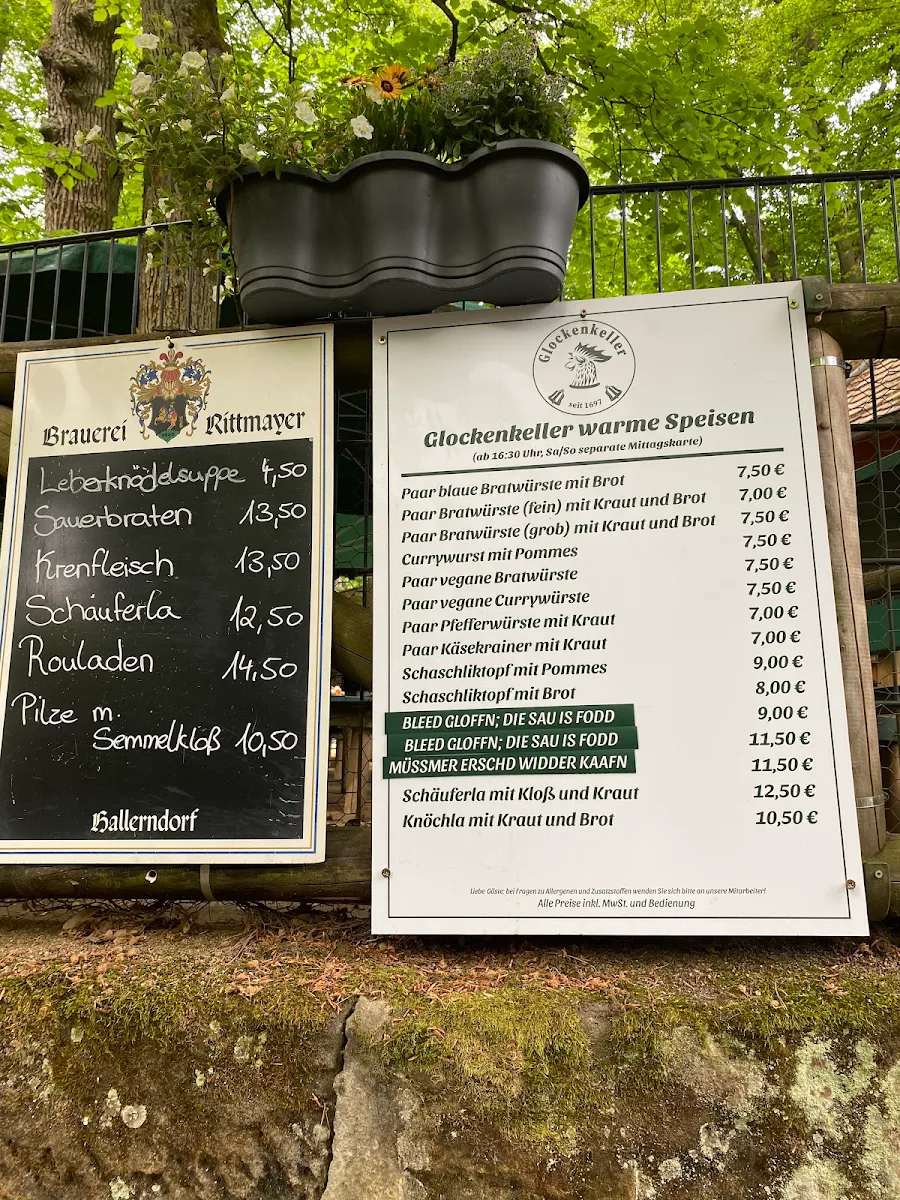 Brauerei Rittmayer
Leberknödelsuppe 4,50
Sauerbraten 13,50
Krenfleisch 13,50
Schäuferla 12,50
Rouladen 14,50
Pilze m.
Semmelkloß 10,50
Hallerndorf
Glockenkeller
seit 1697
Glockenkeller warme Speisen
(ab 16:30 Uhr, Sa/So separate Mittagskarte)
Paar blaue Bratwürste mit Brot 7,50 €
Paar Bratwürste (fein) mit Kraut und Brot 7,00 €
Paar Bratwürste (grob) mit Kraut und Brot 7,50 €
Currywurst mit Pommes 7,50 €
Paar vegane Bratwürste 7,50 €
Paar vegane Currywürste 7,50 €
Paar Pfefferwürste mit Kraut 7,00 €
Paar Käsekrainer mit Kraut 7,00 €
Schaschliktopf mit Pommes 9,00 €
Schaschliktopf mit Brot 8,00 €
BLEED GLOFFN; DIE SAU IS FODD 9,00 €
BLEED GLOFFN; DIE SAU IS FODD 11,50 €
MÜSSMER ERSCHD WIDDER KAAFN 11,50 €
Schäuferla mit Kloß und Kraut 12,50 €
Knöchla mit Kraut und Brot 10,50 €
Liebe Gäste: bei Fragen zu Allergenen und Zusatzstoffen wenden Sie sich bitte an unsere Mitarbeiter!
Alle Preise inkl. MwSt. und Bedienung